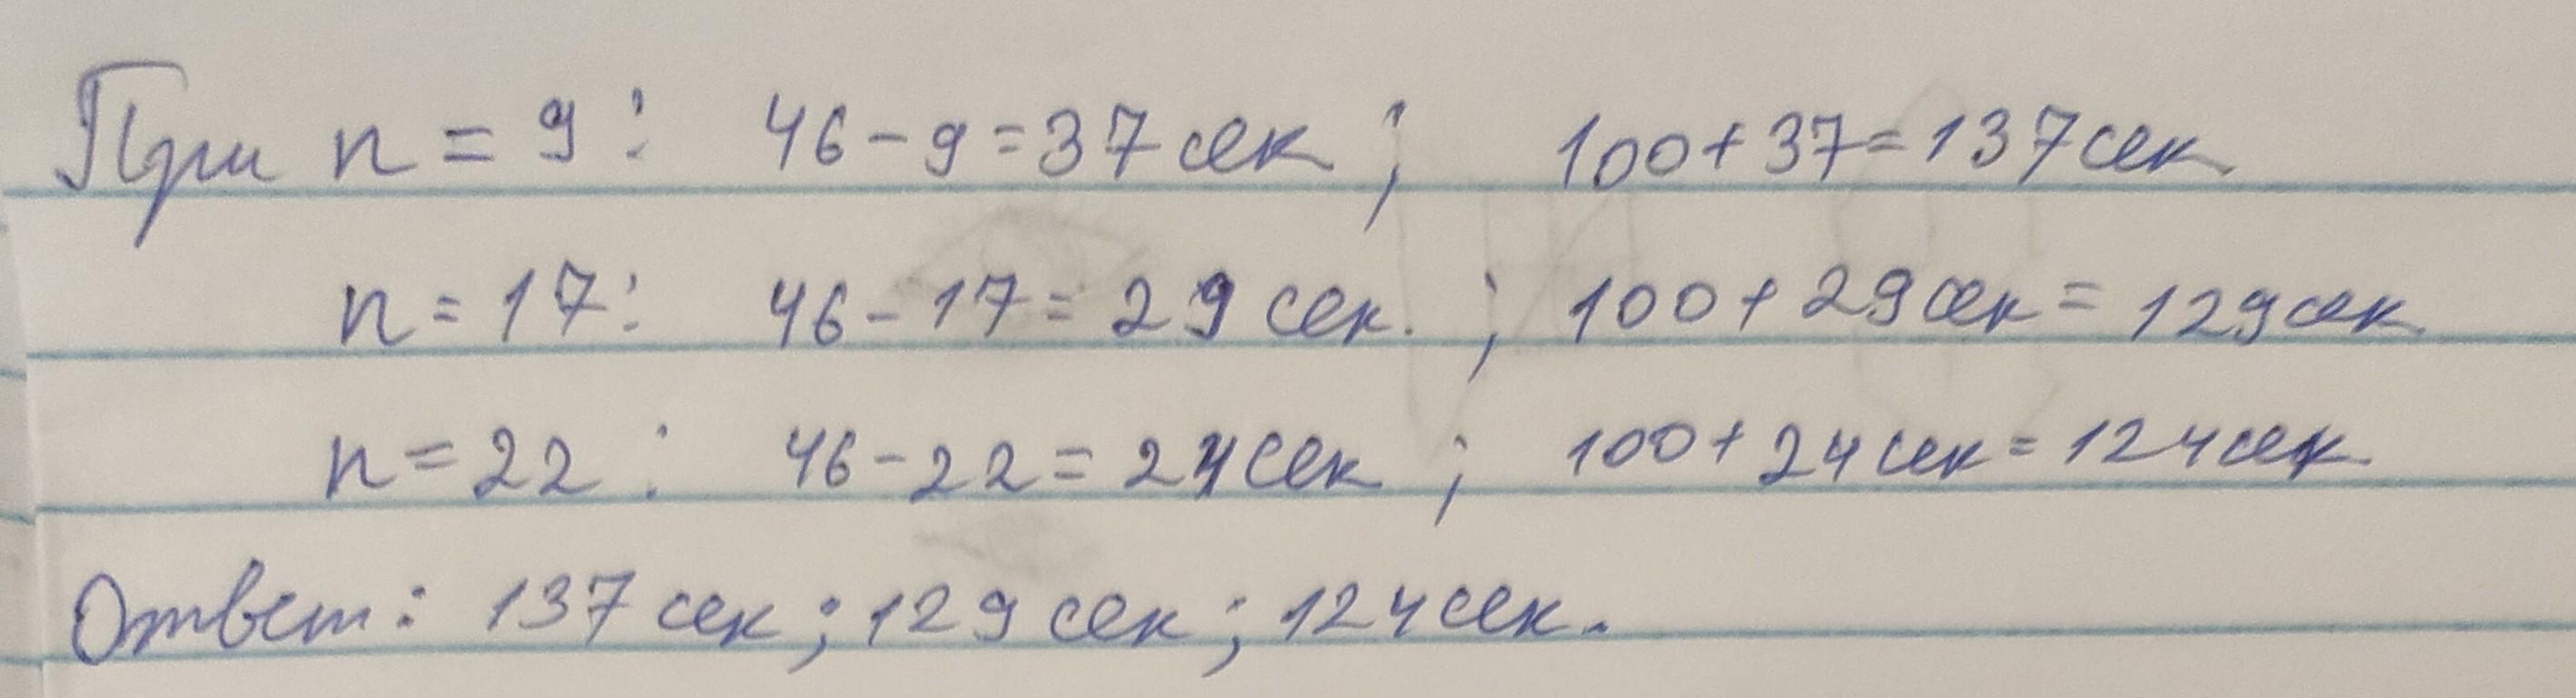 При n = 9: 46 - 9 = 37 сек; 100 + 37 = 137 сек
n = 17: 46 - 17 = 29 сек.; 100 + 29 сек = 129 сек
n = 22: 46 - 22 = 24 сек; 100 + 24 сек = 124 сек.
Ответ: 137 сек; 129 сек; 124 сек.